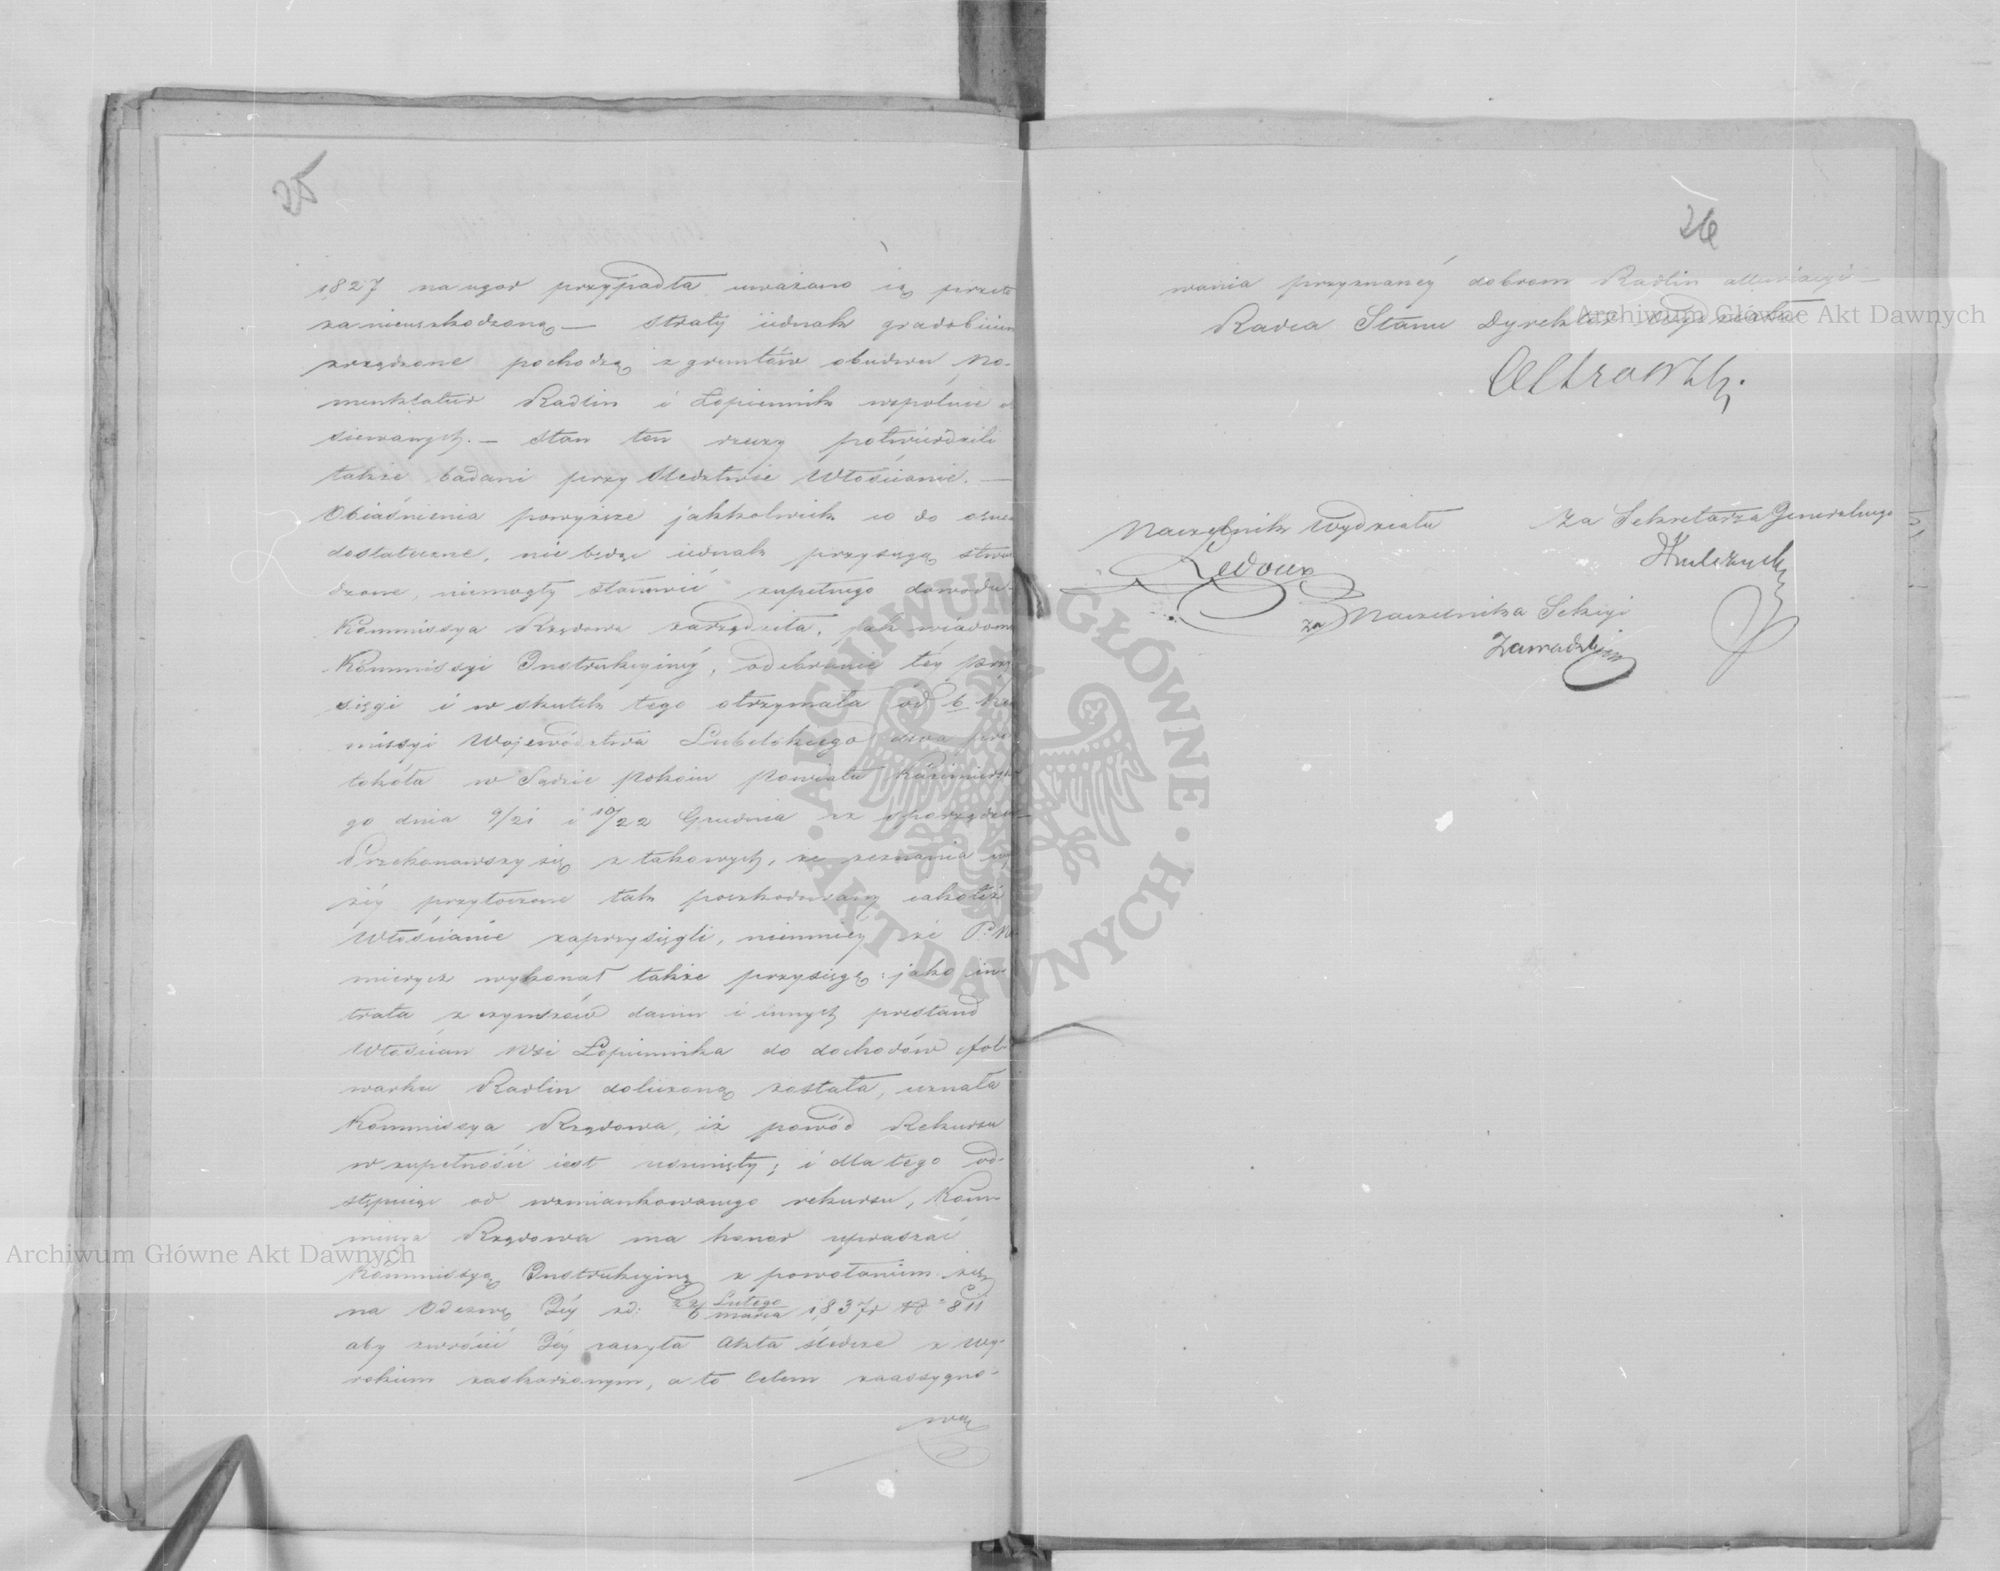 25
1827 na ugor przypadła uważano ią przeto
za nieuszkodzoną — straty iednak gradobiciem
zrządzone pochodzą z gruntów obudwu No-
menklatur Radlin i Łopiennik wspólnie
siewanych. — Stan ten rzeczy potwierdzili
także badani przy śledztwie Włościanie. —
Obiaśnienia powyższe jakkolwiek co do
dostateczne, nie będąc iednak przysięgą stwier
dzone, niemogły stanowić zupełnego dowodu.
Kommissya Rządowa zarządziła, jak wiadomo
Kommissyi Instrukcyinéy, odebranie téy przy
sięgi i w skutek tego otrzymała od b. Kom
missyi Województwa Lubelskiego dwa pro
tokóła w Sądzie Pokoiu Powiatu Kazimierskie
go dnia 9/21 i 10/22 Grudnia
Przekonawszy się z takowych, że zeznania wy
żéy przytoczone tak poszkodowany iakoteż
Włościanie zaprzysięgli, niemniéy że P.
wykonał także przysięgę: jako in-
trata z czynszów danin i innych prestand
Włościan Wsi Łopiennika do dochodów fol-
warku Radlin doliczoną została, uznała
Kommissya Rządowa, iż powód Rekursu
w zupełności iest usunięty; i dla tego od-
stępuiąc od wzmiankowanego rekursu, Kom-
missya Rządowa ma honor upraszać
Kommissyą Instrukcyiną z powołaniem się
na Odezwę Jéy zd: 22 Lutego / 6 Marca 1837 r N° 811
aby zwrócić Jéy raczyła Akta śledcze z Wy-
rokiem zaskarżonym, a to Celem zaassygno-
wa
26
wania przyznanéy dobrom Radlin allewiacyi —
Radca Stanu Dyrektor Wydziału
Naczelnik Wydziału
Za Sekretarza Generalnego
Ledoux
za Naczelnika Sekcyi
Archiwum Główne Akt Dawnych
Archiwum Główne Akt Dawnych
ARCHIWUM GŁÓWNE · AKT DAWNYCH ·